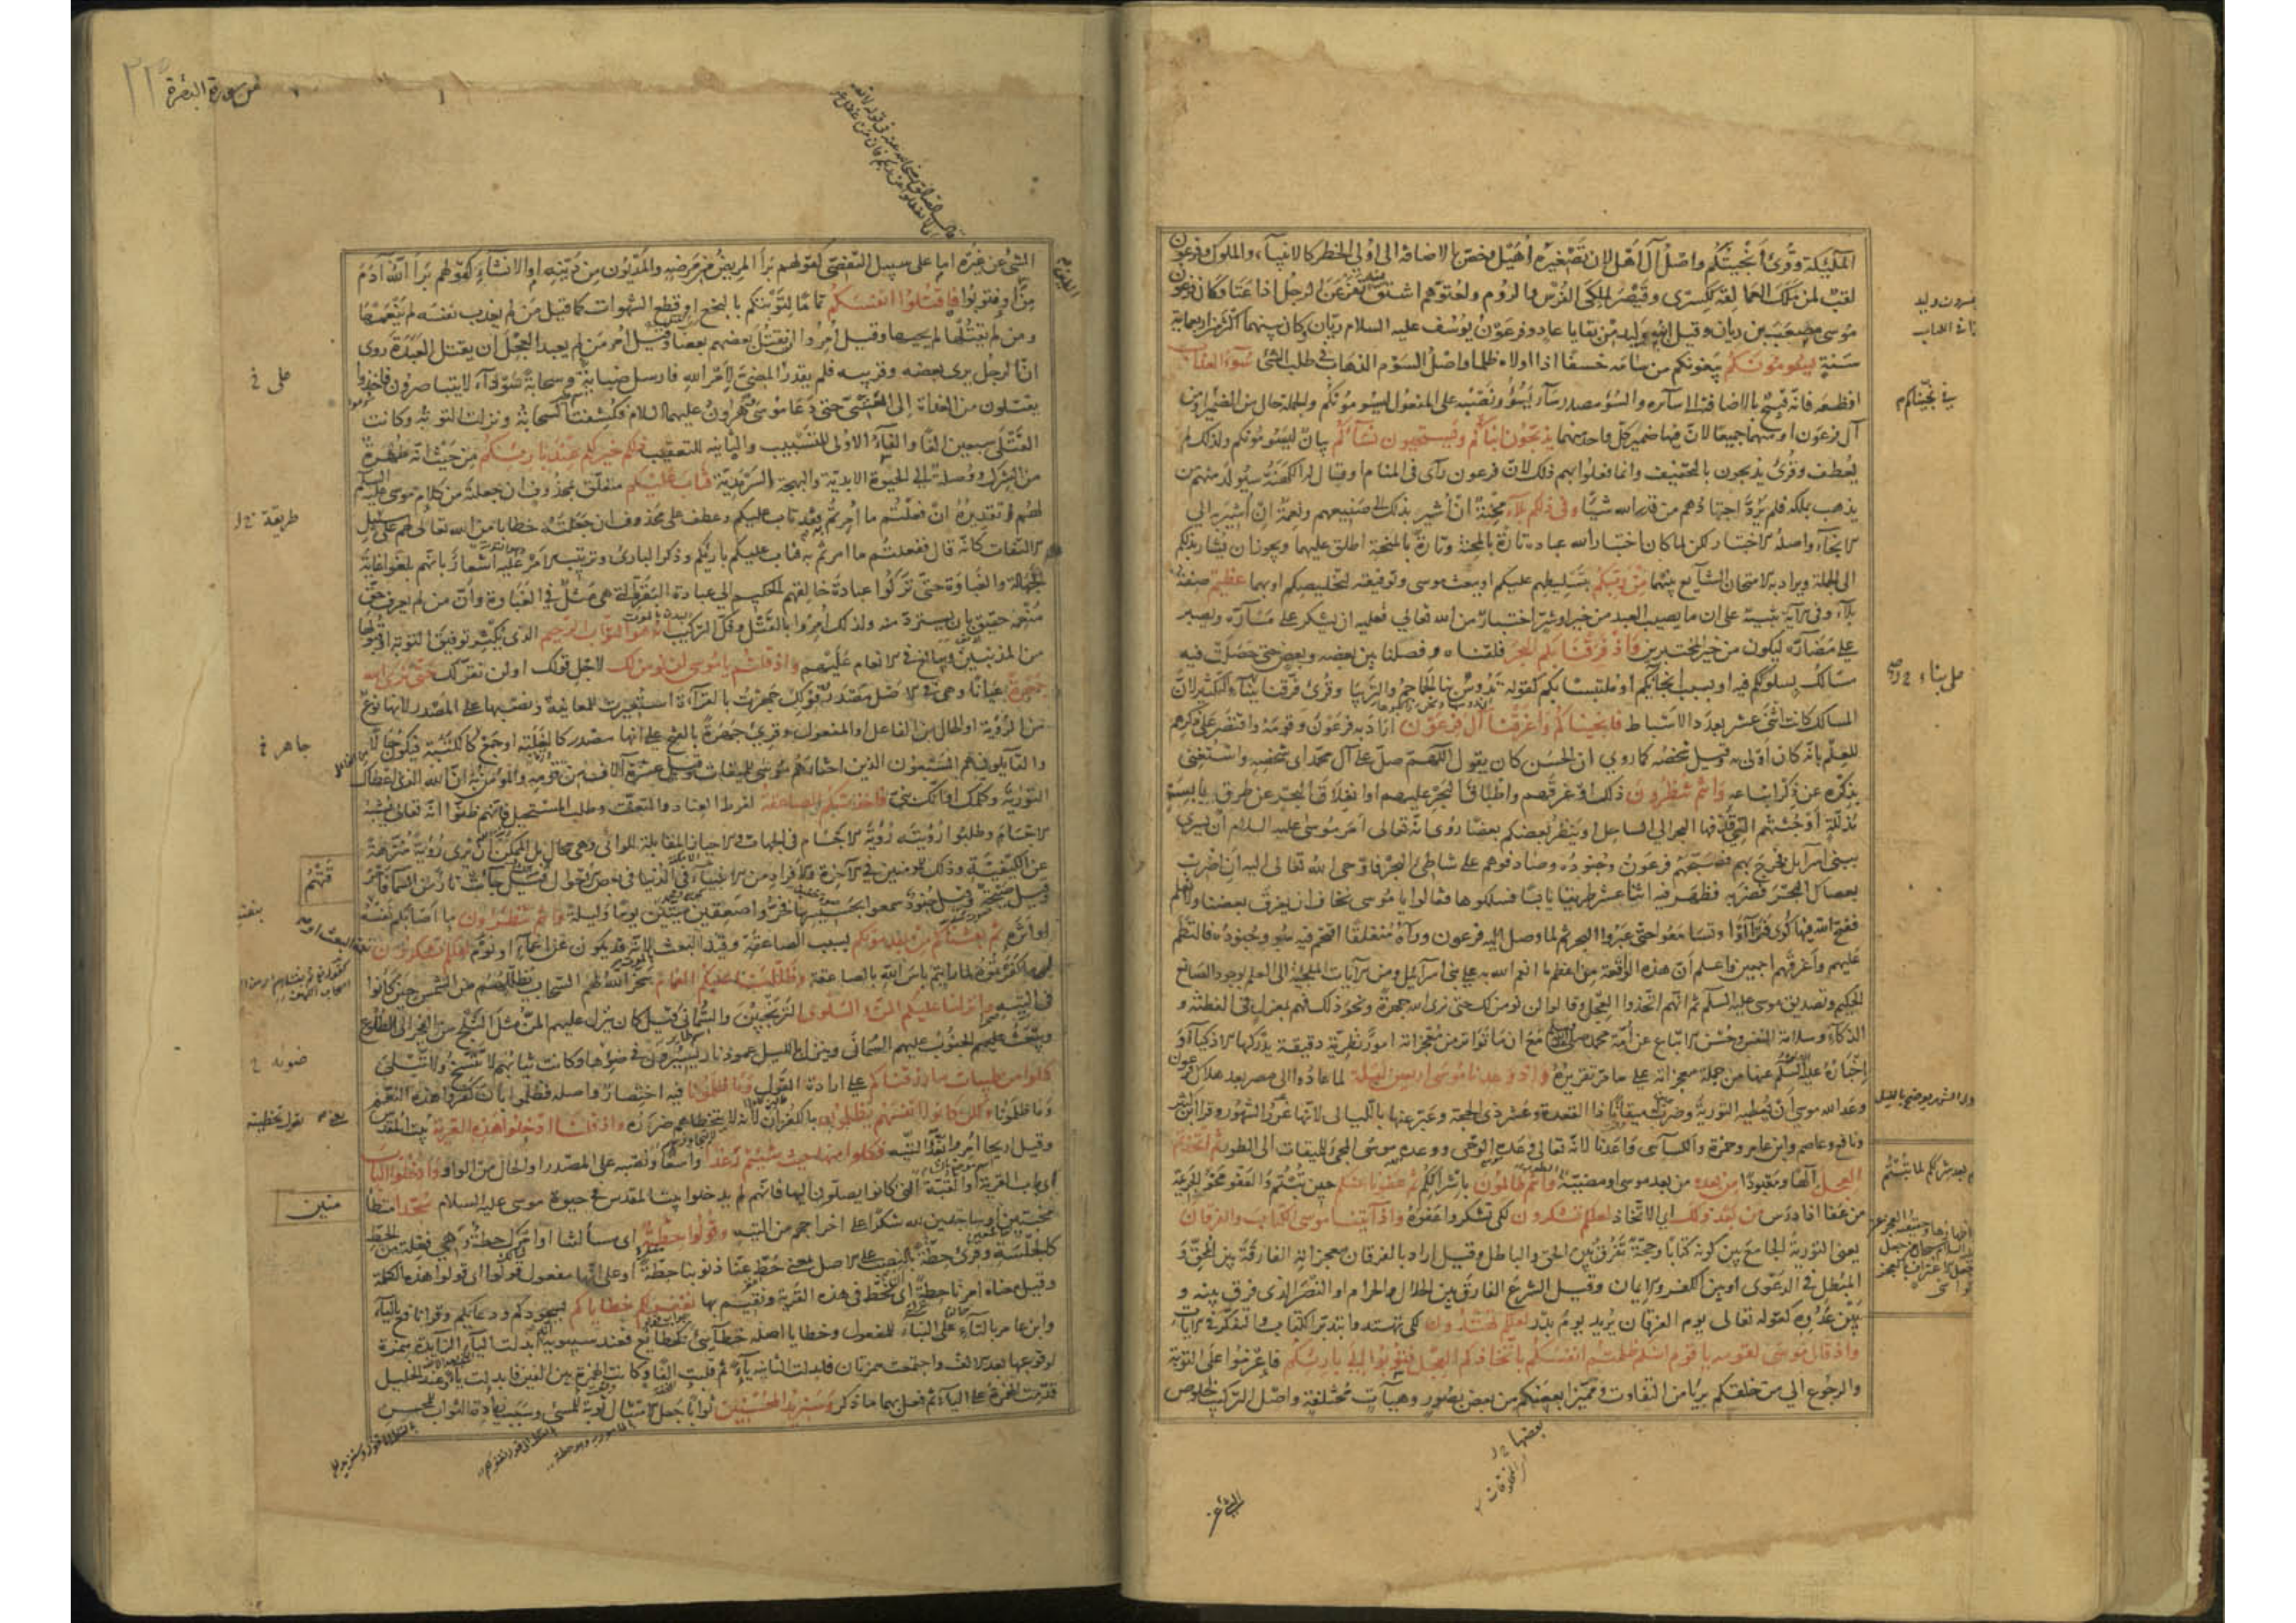 الملئكة وقرئ أنجيتكم واصل آل أهل لان تصغيره أهيل وخص بالاضافة الى اولى الخطر كالانبياء والملوك وفرعون
لقب لمن ملك العمالقة ككسرى وقيصر لملكى الفرس والروم ولعتوهم اشتق منه تفرعن الرجل اذا عتا وكان فرعون
موسى مصعب بن ريان وقيل ابنه وليد من بقايا عاد وفرعون يوسف عليه السلام ريان وكان بينهما اكثر من اربعماية
سنة يسومونكم يبغونكم من سامه خسفا اذا اولاه ظلما واصل السوم الذهاب في طلب الشئ سوء العذاب
افظعه فانه قبيح بالاضافة الى سائره والسوء مصدر ساء يسوء ونصبه على المفعول ليسومونكم والجملة حال من الضمير او من
آل فرعون او منهما جميعا لان فيها ضمير كل واحد منهما يذبحون ابناءكم ويستحيون نساءكم بيان ليسومونكم ولذلك لم
يعطف وقرئ يذبحون بالتخفيف وانما فعلوا بهم ذلك لان فرعون رآى في المنام او قال له الكهنة سيولد منهم من
يذهب بملكه فلم يرد اجتهادهم من قدر الله شيئا وفي ذلكم بلاء محنة ان أشير بذلكم الى صنيعهم ونعمة ان أشير به الى
الانجاء واصله الاختبار لكن لما كان اختبار الله عباده تارة بالمحنة وتارة بالمنحة اطلق عليهما ويجوز ان يشار بذلكم
الى الجملة ويراد به الامتحان الشايع بينهما من ربكم بتسليطهم عليكم او ببعث موسى وتوفيقه لتخليصكم او بهما عظيم صفة
بلاء وفي الآية تنبيه على ان ما يصيب العبد من خير او شر اختبار من الله تعالى فعليه ان يشكر على مساره ويصبر
على مضاره ليكون من خير المختبرين واذ فرقنا بكم البحر فلقناه وفصلنا بين بعضه وبعض حتى حصلت فيه
مسالك بسلوككم فيه او بسبب انجائكم او ملتبسا بكم كقوله تدوس بنا الجماجم والتريبا وقرئ فرقنا بناء التكثير لان
المسالك كانت اثنى عشر بعدد الاسباط فانجيناكم واغرقنا آل فرعون اراد به فرعون وقومه واقتصر على ذكرهم
للعلم بانه كان اولى به وقيل شخصه كما روي ان الحسن كان يقول اللهم صل على آل محمد اى شخصه واستغنى
بذكره عن ذكر اتباعه وانتم تنظرون ذلك او غرقهم واطباق البحر عليهم او انفلاق البحر عن طرق يابسة
مذللة او جثثهم التي قذفها البحر الى الساحل او ينظر بعضكم بعضا روى انه تعالى امر موسى عليه السلام ان يسري
ببنى اسرآئل فخرج بهم فصبحهم فرعون وجنوده وصادفوهم على شاطئ البحر فاوحى الله تعالى اليه ان اضرب
بعصاك البحر فضربه فظهر فيه اثنا عشر طريقا يابسا فسلكوها فقالوا يا موسى نخاف ان يغرق بعضنا ولا نعلم
ففتح الله فيها كوى فتراءوا وتسامعوا حتى عبروا البحر ثم لما وصل اليه فرعون ورآه منفلقا اقتحم فيه هو وجنوده فالتطم
عليهم واغرقهم اجمعين واعلم ان هذه الواقعة من اعظم ما انعم الله به على بنى اسرآئيل ومن الآيات الملجئة الى العلم بوجود الصانع
الحكيم وتصديق موسى عليه السلم ثم انهم اتخذوا العجل وقالوا لن نؤمن لك حتى نرى الله جهرة ونحو ذلك فهم بمعزل في الفطنة و
الذكاء وسلامة النفس وحسن الاتباع عن أمة محمد مع ان ما تواتر من معجزاته امور نظرية دقيقة يدركها الاذكياء و
إخباره عليه السلم عنها من جملة معجزاته على ما مر تقريره واذ وعدنا موسى اربعين ليلة لما عادوا الى مصر بعد هلاك فرعون
وعد الله موسى أن يعطيه التورية وضرب له ميقاتا ذا القعدة وعشر ذى الحجة وعبر عنها بالليالى لانها غرر الشهور وقرا ابن كثير
ونافع وعاصم وابن عامر وحمزة والكسآئى واعدنا لانه تعالى وعده الوحى ووعده موسى المجئ للميقات الى الطور ثم اتخذتم
العجل الها ومعبودا من بعده من بعد موسى او مضيه وانتم ظالمون باشراككم ثم عفونا عنكم حين تبتم والعفو محو الجريمة
من عفا اذا درس من بعد ذلك اى الاتخاذ لعلكم تشكرون لكى تشكروا عفوه واذ آتينا موسى الكتاب والفرقان
يعنى التورية الجامع بين كونه كتابا وحجة تفرق بين الحق والباطل وقيل اراد بالفرقان معجزاته الفارقة بين المحق و
المبطل في الدعوى او بين الكفر والايمان وقيل الشرع الفارق بين الحلال والحرام او النصر الذى فرق بينه و
بين عدوه كقوله تعالى يوم الفرقان يريد يوم بدر لعلكم تهتدون لكى تهتدوا بتدبر الكتاب والتفكر في الآيات
واذ قال موسى لقومه يا قوم انكم ظلمتم انفسكم باتخاذكم العجل فتوبوا الى بارئكم فاعزموا على التوبة
والرجوع الى من خلقكم بريا من التفاوت مميزا بعضكم من بعض بصور وهيآت مختلفة واصل التركيب لخلوص
من سورة البقرة
الشئ عن غيره اما على سبيل التفصى كقولهم برأ المريض من مرضه والمديون من دينه او الانشاء كقولهم برأ الله آدم
من او فتوبوا فاقتلوا انفسكم تماما لتوبتكم بالبخع او قطع الشهوات كما قيل من لم يعذب نفسه لم ينعمها
ومن لم يقتلها لم يحيها وقيل أمروا ان يقتل بعضهم بعضا وقيل أمر من لم يعبد العجل أن يقتل العبدة روى
ان الرجل يرى بعضه وقريبه فلم يقدر المضى لأمر الله فارسل ضبابة وسحابة سودآء لايتباصرون فاخذوا
يقتتلون من الغداة إلى العشى حتى دعا موسى وهرون عليهما السلام فكشفت السحابة ونزلت التوبة وكانت
القتلى سبعين الفا والفاء الاولى للتسبيب والثانية للتعقيب ذلكم خير لكم عند بارئكم من حيث انه طهرة
من الشرك ووصلة الى الحيوة الابدية والبهجة السرمدية فتاب عليكم متعلق بمحذوف ان جعلته من كلام موسى عليه السلم
لهم تقديره ان فعلتم ما أمرتم فقد تاب عليكم وعطف على محذوف ان جعلته خطابا من الله تعالى لهم على سبيل
الالتفات كانه قال ففعلتم ما امرتم به فتاب عليكم بارئكم وذكر البارئ وترتيب الامر عليه اشعار بانهم بلغوا غاية
الجهالة والغباوة حتى تركوا عبادة خالقهم الحكيم الى عبادة البقر التى هى مثل في الغباوة وأن من لم يعرف حق
منعمه حقيق بان يسترد منه ولذلك أمروا بالقتل وفك التركيب انه هو التواب الرحيم الذى يكثر توفيق التوبة او قبولها
من المذنبين ويبالغ في الانعام عليهم واذ قلتم يا موسى لن نومن لك لاجل قولك او لن نقر لك حتى نرى الله
جهرة عيانا وهى في الاصل مصدر قولك جهرت بالقرآءة استعيرت للمعاينة ونصبها على المصدر لانها نوع
من الرؤية او الحال من الفاعل او المفعول وقرئ جهرة بالفتح على انها مصدر كالغلبة او جمع كالكتبة فيكون حالا
والقآيلون هم السبعون الذين اختارهم موسى للميقات وقيل عشرة آلاف من قومه والمؤمن به ان الله الذى اعطاك
التورية وكلمك او انك نبى فاخذتكم الصاعقة لفرط العناد والتعنت وطلب المستحيل فانهم ظنوا انه تعالى يشبه
الاجسام وطلبوا رؤيته رؤية الاجسام في الجهات والاحياز المقابلة للرائى وهى محال بل الممكن أن يرى رؤية منزهة
عن الكيفية وذلك للمومنين في الآخرة ولأفراد من الانبياء في الدنيا في بعض الاحوال قيل جاءت نار من السماء فاحرقتهم
وقيل صيحة وقيل جنود سمعوا بحسيسها فخروا صعقين ميتين يوما وليلة وانتم تنظرون ما اصابكم بنفسه
او اثره ثم بعثناكم من بعد موتكم بسبب الصاعقة وقيد البعث لانه قد يكون عن اغماء او نوم لعلكم تشكرون نعمة البعث او
ما كفرتموه لما رايتم باس الله بالصاعقة وظللنا عليكم الغمام سخر الله لهم السحاب يظلهم من الشمس حين كانوا
في التيه وانزلنا عليكم المن والسلوى الترنجبين والسمانى قيل كان ينزل عليهم المن مثل الثلج من الفجر الى الطلوع
ويبعث عليهم الجنوب عليهم السمانى وينزل بالليل عمود نار يسيرون في ضوءها وكانت ثيابهم لا تتسخ ولا تبلى
كلوا من طيبات ما رزقناكم على ارادة القول وما ظلمونا فيه اختصار واصله فظلموا بان كفروا هذه النعم
وما ظلمونا ولكن كانوا انفسهم يظلمون بالكفران لانه لا يتخطاهم ضرره واذ قلنا ادخلوا هذه القرية بيت المقدس
وقيل اريحا أمروا به بعد التيه فكلوا منها حيث شئتم رغدا واسعا ونصبه على المصدر او الحال من الواو وادخلوا الباب
اى باب القرية او القبة التى كانوا يصلون اليها فانهم لم يدخلوا بيت المقدس في حيوة موسى عليه السلام سجدا متطأ
منين او ساجدين لله شكرا على اخراجهم من التيه وقولوا حطة اى مسألتنا او امرك حطة وهى فعلة من الحط
كالجلسة وقرئ حطة بالنصب على الاصل بمعنى حط عنا ذنوبنا حطة او على انها مفعول قولوا اى قولوا هذه الكلمة
وقيل معناه امرنا حطة اى نحط في هذه القرية ونقيم بها نغفر لكم خطاياكم بسجودكم ودعائكم وقرا نافع بالياء
وابن عامر بالتاء على البناء للمفعول وخطايا اصله خطآيئ كخطايع فعند سيبويه ابدلت الياء الزايدة همزة
لوقوعها بعد الالف واجتمعت همزتان فابدلت الثانية ياء ثم قلبت الفا وكانت الهمزة بين الفين فابدلت ياء وعند الخليل
قدمت الهمزة على الياء ثم فعل بهما ما ذكر وسنزيد المحسنين ثوابا جعل الامتثال توبة للمسئ وسبب زيادة الثواب للمحسن